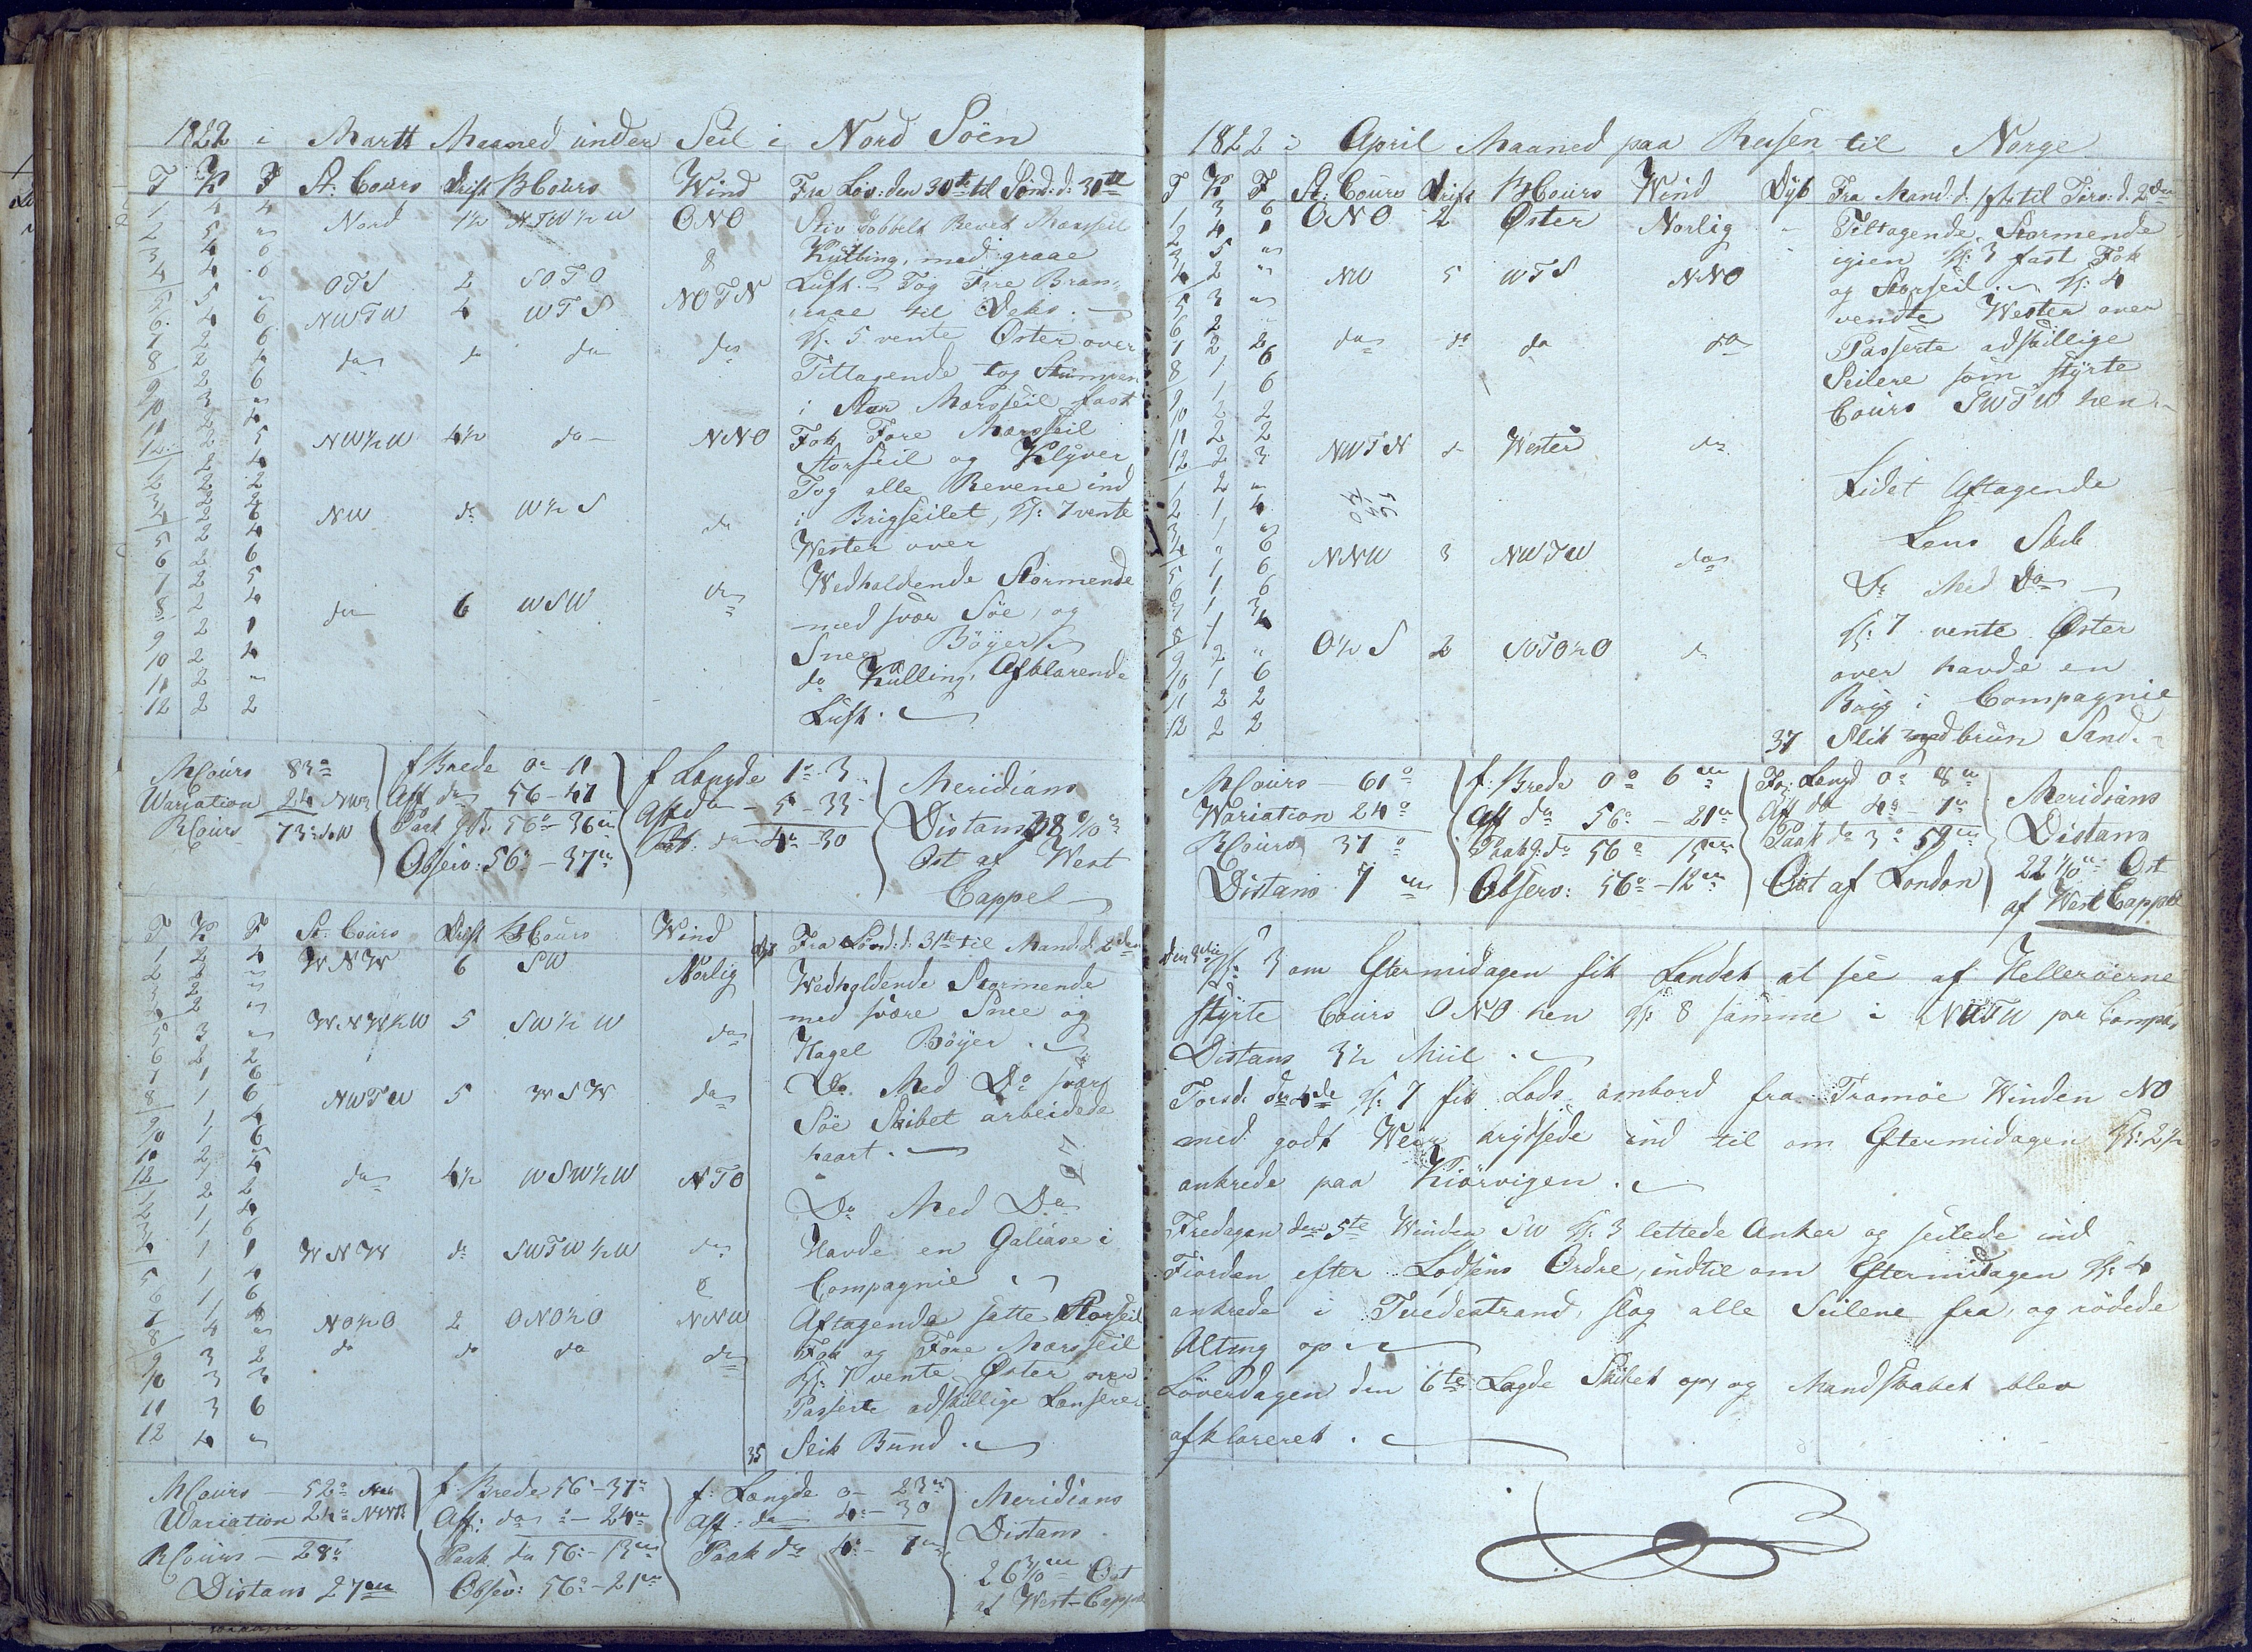 1822 i Martt Maaned under Seil i Nord Söen
T K F St: Cours Drift BCours Wind Fra Löv: den 30te til Sönd: d: 31te
1 4 4 Nord 1½ NTW½W ONO Stiv dobbelt Revet Marsseil
2 5 "
Kulling, med graae
3 4 6
4 4 6 OTS 2 SOTO Luft. Tog Fore Bram-
5 5 " NWTW 4 WTS NOTN raae til Deks.
6 4 6
Kl: 5 vente Öster over
7 2 6
8 2 4 do do do do Tiltagende tog Stumpen
9 2 6
10 3 " i Stor Marsseil fast
11 2 4
12 2 5 NW½W 4½ do NNO Fok Fore Marsseil
1 2 4 Storseil og Klyver
2 2 2 Tog alle Revene ind
3 2 4
4 2 6 NW do W½S do i Brigseilet, Kl: 7 vente
5 2 4 Wester over
6 2 6
7 2 5 Wedholdende Stormende
8 2 4 do 6 WSW do med svær Söe, og
9 2 1 Snee Böyer
10 2 4
11 2 " do Kulling, Afklarende
12 2 2 Luft.
MCours 83° f Brede 0°-11 f Længde 1°-3 Meridians
Wariation 24 NW Aff do 56-47 Aff do 5-33 Distans 38
RCours 73° SoW Paak g B. 56°-36m Paak do 4°-30 Ost af West
Observ: 56°-37m Cappel
T K F St: Cours Drift BCours Wind Dyb Fra Sönd: d: 31te til Mand: d: 2den
1 2 4 WNW 6 SW Norlig Wedholdende Stormende
2 2 "
3 2 " med svære Snee og
4 2 " WNW½W 5 SW½W do Hagel Böyer.
5 3 "
6 2 2
7 1 6 Do Med Do svær
8 1 6 NWTW 5 WSW do Söe Skibet arbeidede
9 1 4 haart.
10 1 6
11 2 4
12 1 5 do 4½ WSW½W NTO Do Med Do
1 2 2
2 1 4
3 1 6 Havde en Galiase i
4 1 1 WNW do SWTW½W do Compagnie
5 1 4
6 1 6
7 1 4 Aftagende satte Storseil
8 4 " NO½O 2 ONO½O NNW Fok og Fore Marsseil
9 3 2 do do do do Kl: 7 vente Öster over
10 3 3
11 3 6 Passerte adskillige Lanserer
12 4 " 35 Slik Bund.
MCours - 52° f: Brede 56°-37m f: Længde 0-23m Meridians
Wariation 24° NW Aff: do - 24m Aff: do 4°-30 Distans
RCours - 28° Paak do 56°-13m Paak do 4°-7m 26 3/10 m Ost
Distans 27m Observ: 56°-21m af West-Cappel
1822 i April Maaned paa Reisen til Norge
T K F St: Cours Drift BCours Wind Dyb Fra Mand: d: 1ste til Tirs: d: 2den
1 3 6 ONO 2 Öster Norlig Tiltagende Stormende
2 4 1
3 5 " igien Kl: 3 fast Fok
4 2 " NW 5 WTS NNO og Storseil. Kl: 4
5 3 " vendte Wester over
6 2 "
7 2 2 do do do do Passerte adskillige
8 1 6 Seilere som styrte
9 1 6 Cours SWTW hen
10 2 2
11 2 2
12 2 3 NWTN do Wester do
1 2 " Lidet Aftagende
2 1 4
3 1 " Lens Skib
4 " 6 NNW 3 NWTW do
5 1 6 Do Med Do
6 1 6
7 1 3 Kl: 7 vente Öster
8 1 4 O½S 2 SOTO½O do over havde en
9 2 "
10 1 6 Brig i Compagnie
11 2 2
12 2 2 37 Slik med brun Sand.
MCours - 61° f: Brede 0° 6m For: Længd 0° 8m Meridians
Wariation 24° Aff do 56°-21m Aff do 4° 7m Distans
RCours 37° Paak g: do 56° 15m Paak do 3° 59m 22 1/10 m Ost
Distans 7m Observ: 56°-12m Ost af London af West Cappel
Kl: 3 om Eftermidagen fik Landet at see af Helleröerne
styrte Cours ONO hen Kl: 8 samme i NWTW pr Compas
Distans 3½ Miil.
Torsd: den 4de Kl: 7 fik Lods ombord fra Tromöe Winden NO
med godt Weir krydssede ind til om Eftermidagen Kl: 2½
ankrede paa Kiörvigen.
Fredagen den 5te Winden SW Kl: 3 lettede Anker og seilede ind
Fiorden efter Lodsens Ordre, indtil om Eftermidagen Kl: 4
ankrede i Tvedestrand, slog alle Seilene fra, og rödede
Alting op
Löverdagen den 6te Lagde Skibet op, og Mandskabet blev
afklareret.